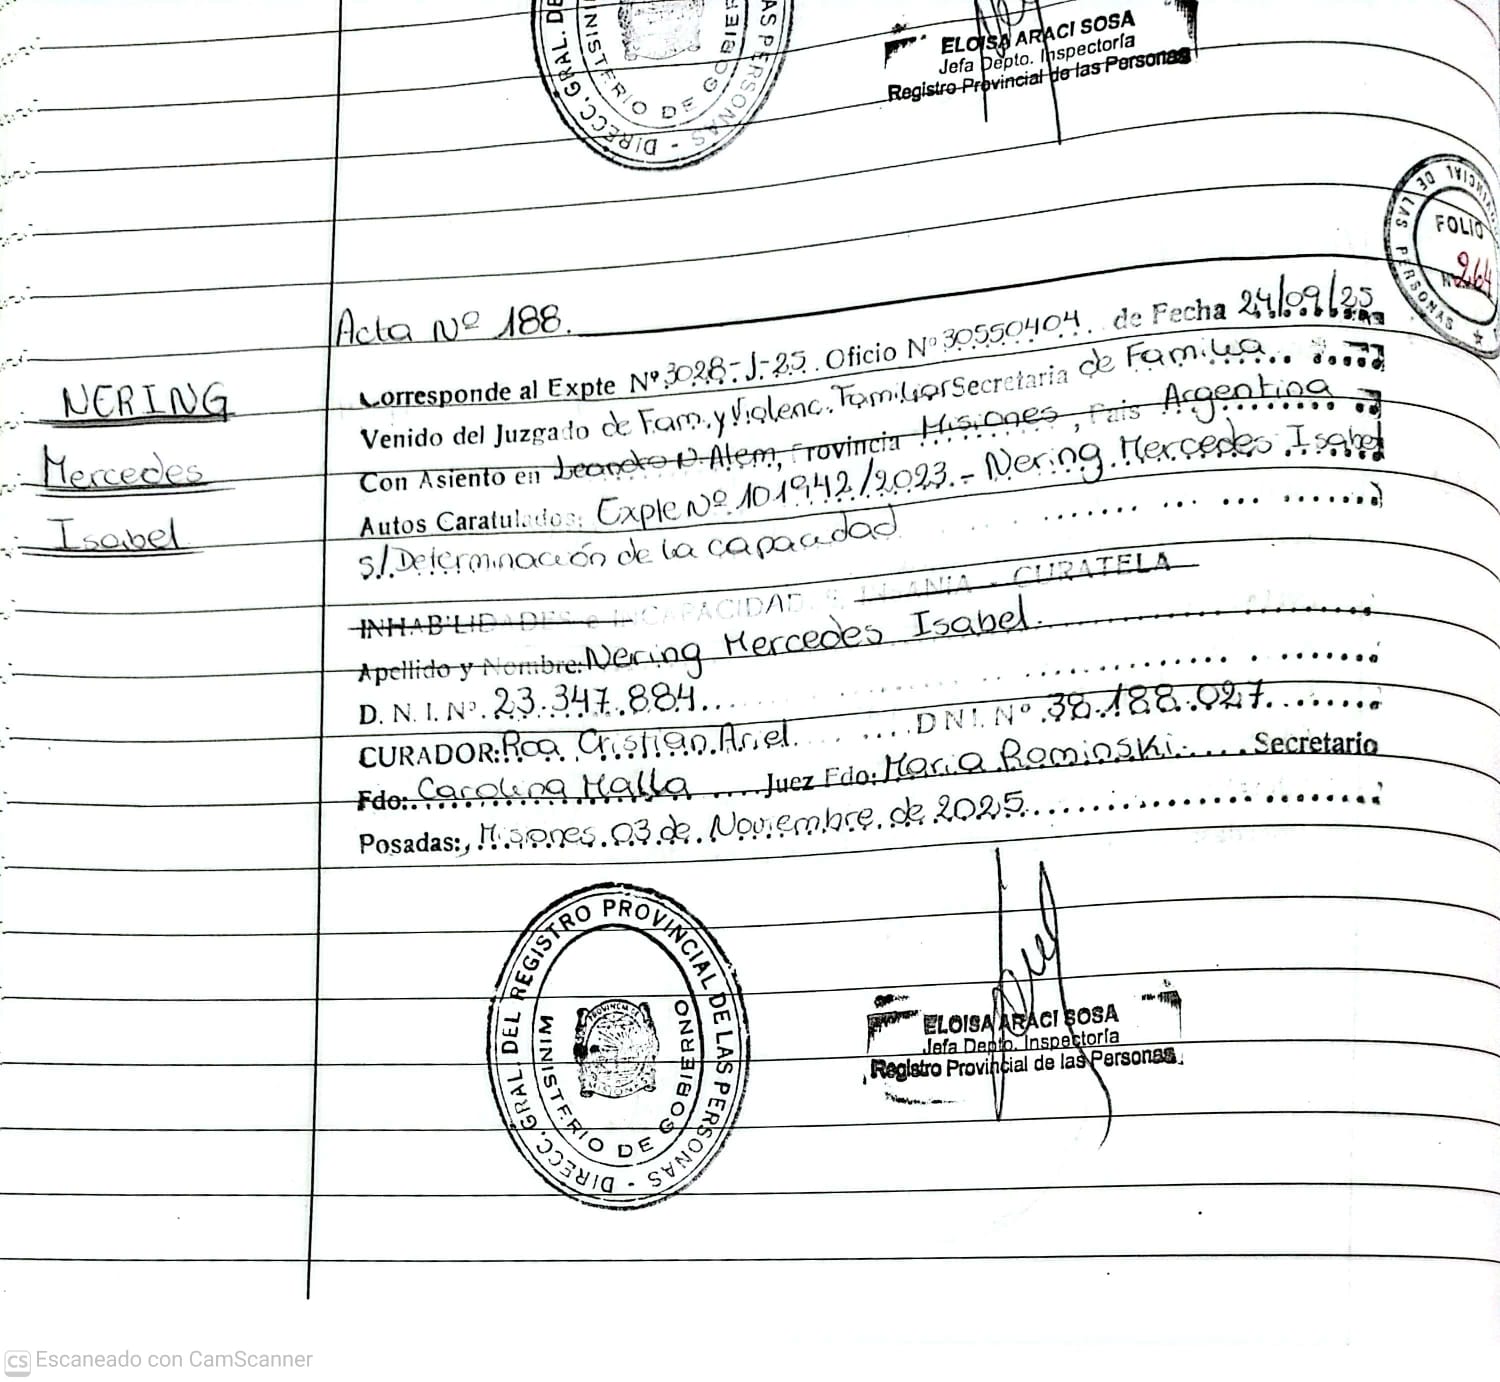 DIRECC. GRAL. DE
AS PERSONAS -
MINISTERIO DE GOBIER
ELOISA ARACI SOSA
Jefa Depto. Inspectoría
Registro Provincial de las Personas
INCIAL DE LAS PERSONAS
FOLIO
Nº 264
Acta Nº 188.
NERING
Mercedes
Isabel
Corresponde al Expte Nº 3028-J-25. Oficio Nº 30550404 de Fecha 24/09/25
Venido del Juzgado de Fam. y Violenc. Familiar Secretaria de Familia
Con Asiento en Leandro N. Alem, Provincia Misiones, País Argentina
Autos Caratulados: Expte Nº 101942/2023.- Nering Mercedes Isabel
s/. Determinación de la capacidad
INHABILIDADES e INCAPACIDADES INSANIA - CURATELA
Apellido y Nombre: Nering Mercedes Isabel.
D. N. I. Nº. 23.347.884
CURADOR: Roa Cristian Ariel. DNI. Nº 38.188.027.
Fdo: Carolina Malla Juez Fdo: Maria Rominski. Secretario
Posadas:, Misiones. 03 de Noviembre de 2025
DIRECC. GRAL. DEL REGISTRO PROVINCIAL DE LAS PERSONAS -
MINISTERIO DE GOBIERNO
ELOISA ARACI SOSA
Jefa Depto. Inspectoría
Registro Provincial de las Personas
CS Escaneado con CamScanner